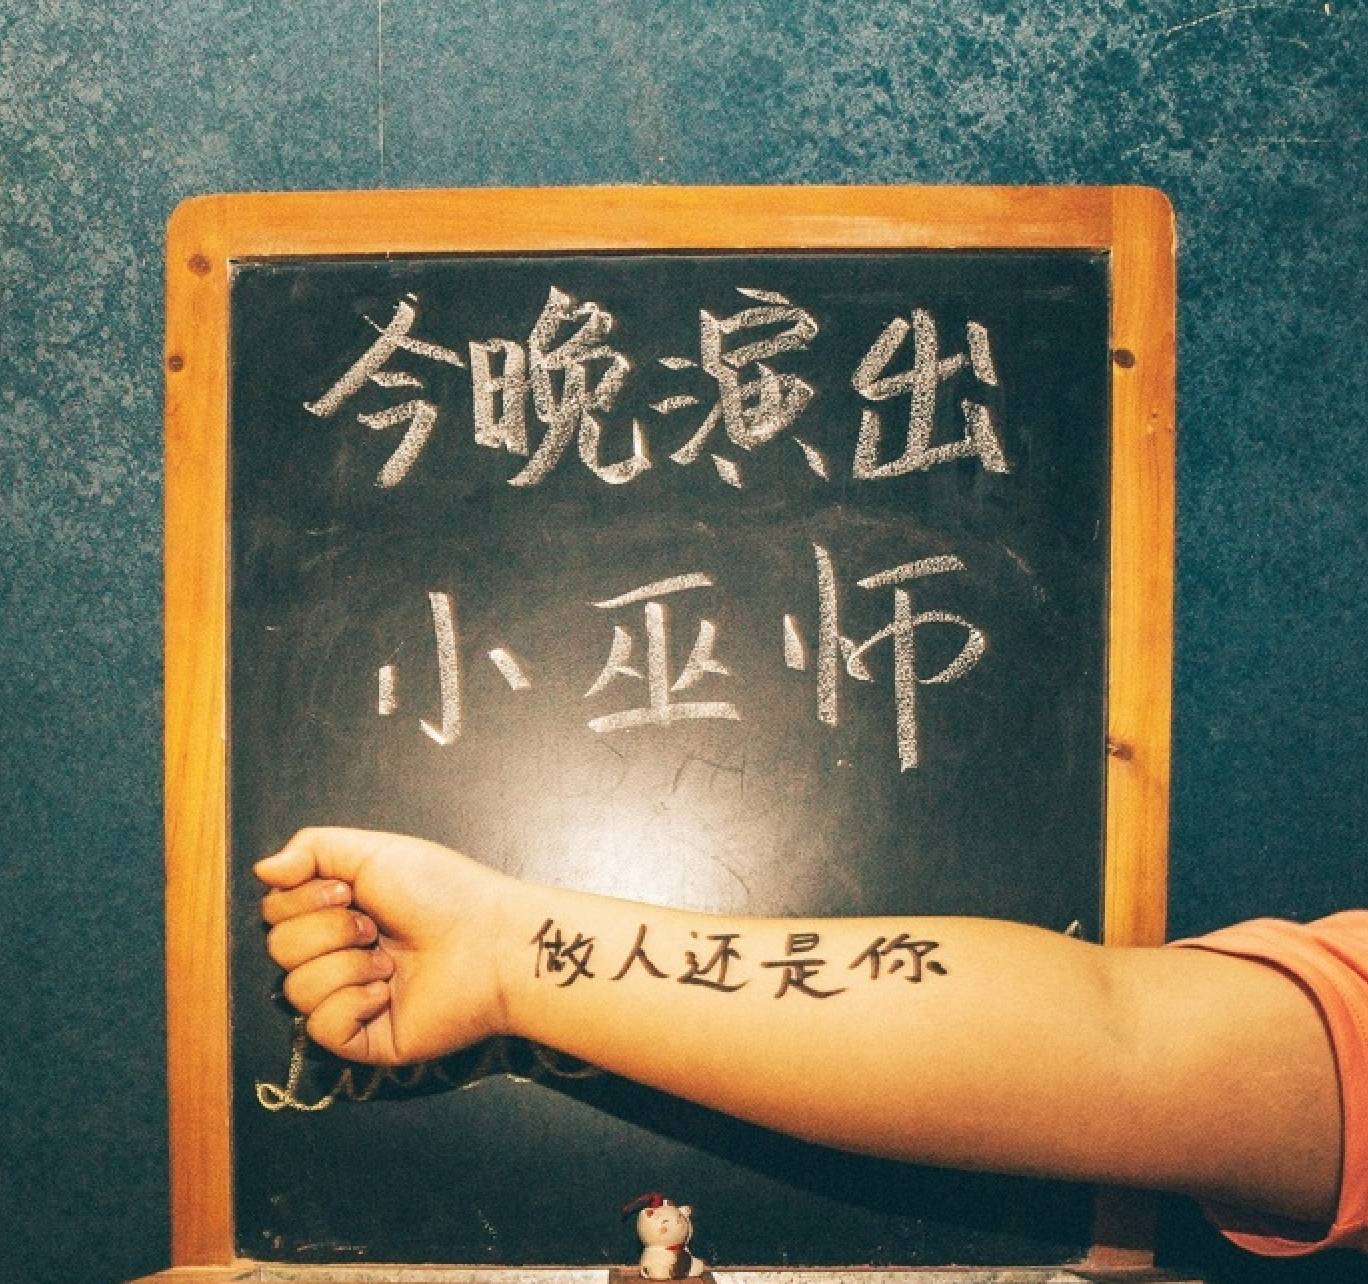 今晚演出
小巫师
做人还是你